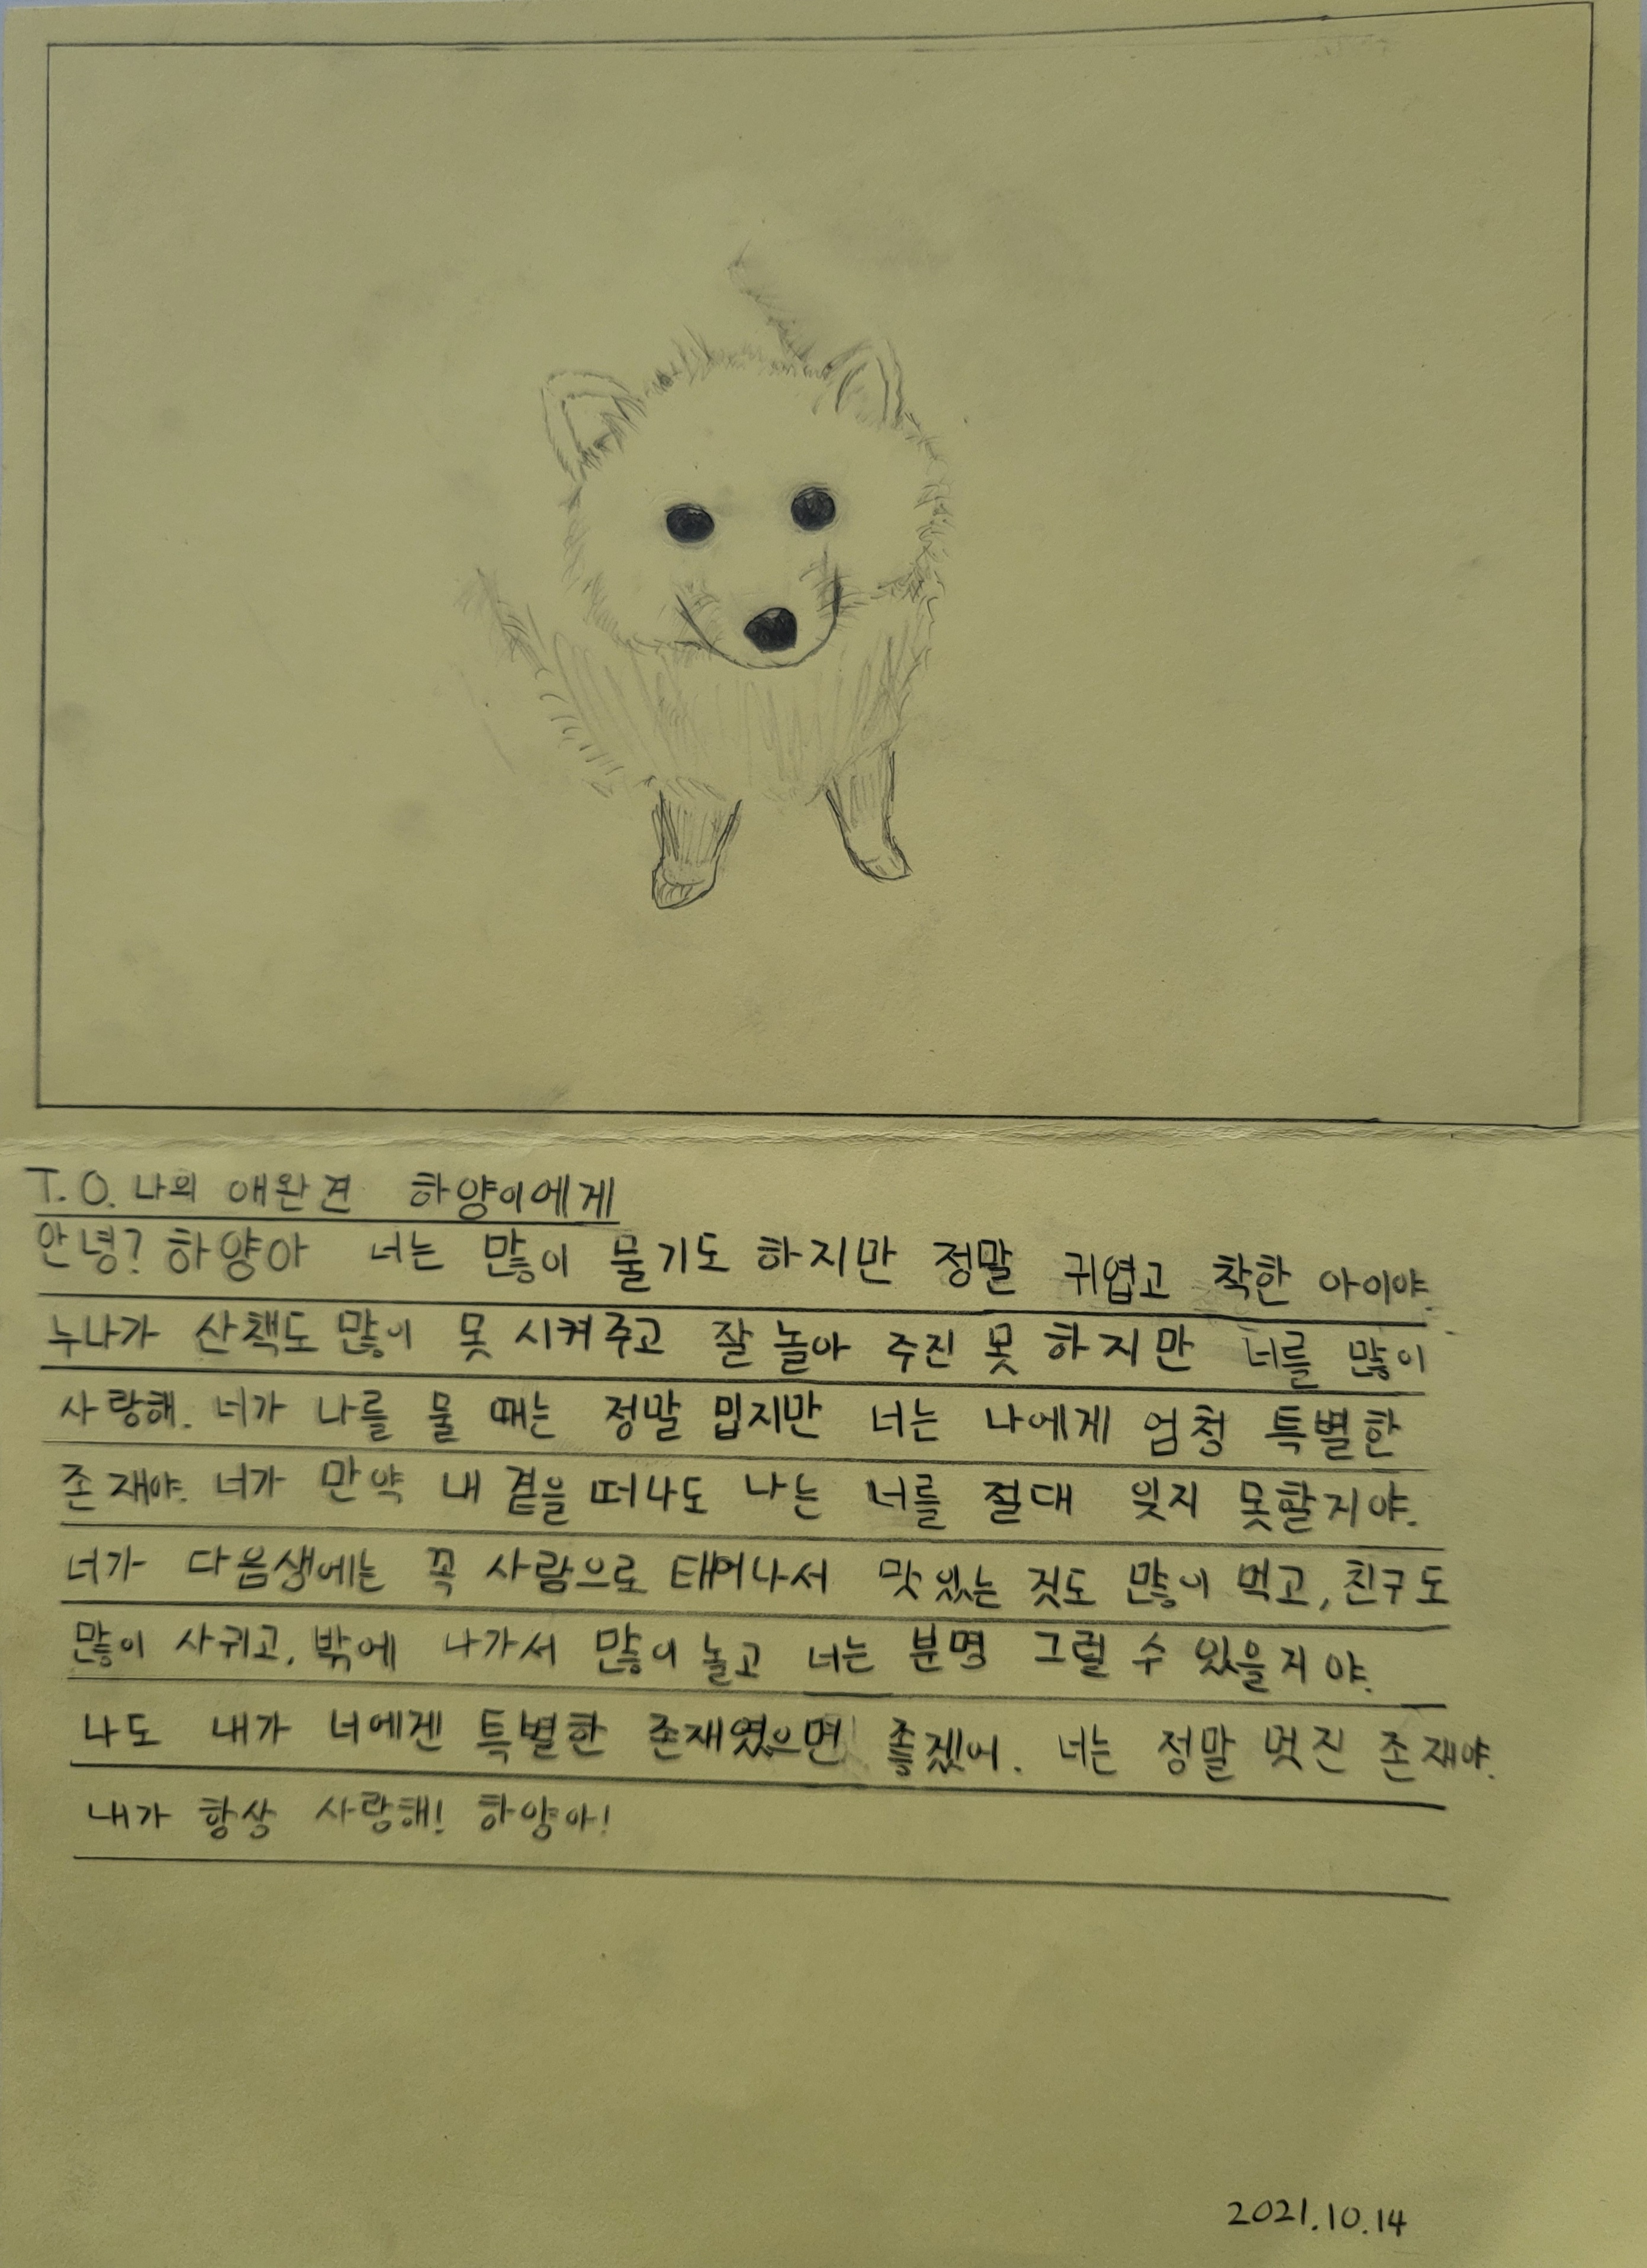 T.O. 나의 애완견 하양이에게
안녕? 하양아 너는 많이 물기도 하지만 정말 귀엽고 착한 아이야.
누나가 산책도 많이 못 시켜주고 잘 놀아 주진 못 하지만 너를 많이
사랑해. 너가 나를 물 때는 정말 밉지만 너는 나에게 엄청 특별한
존재야. 너가 만약 내 곁을 떠나도 나는 너를 절대 잊지 못할지야.
너가 다음생에는 꼭 사람으로 태어나서 맛있는 것도 많이 먹고, 친구도
많이 사귀고, 밖에 나가서 많이 놀고 너는 분명 그럴 수 있을지야.
나도 내가 너에겐 특별한 존재였으면 좋겠어. 너는 정말 멋진 존재야.
내가 항상 사랑해! 하양아!
2021.10.14